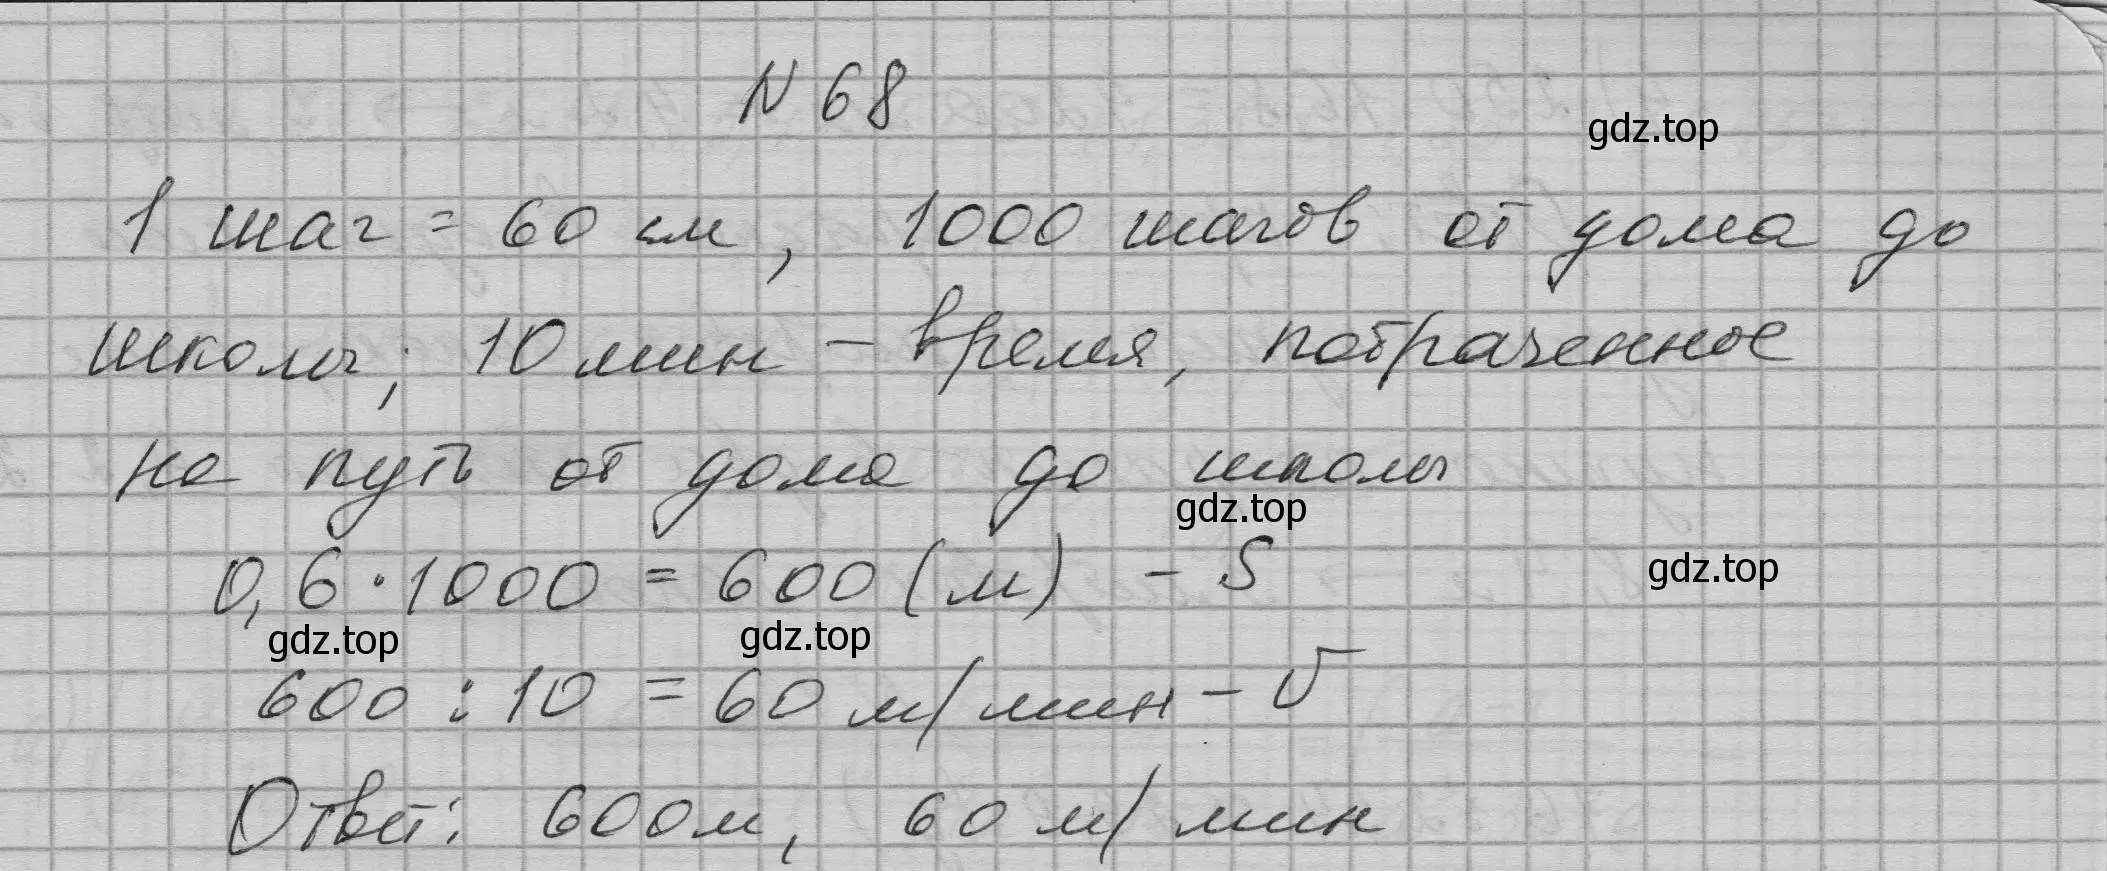 N 68
gdz.top
1 шаг = 60 см, 1000 шагов от дома до
школы; 10 мин – время, потраченное
на путь от дома до школы
gdz.top
0,6 · 1000 = 600 (м) – S
gdz.top
gdz.top
gdz.top
600 : 10 = 60 м/мин – υ
Ответ: 600м, 60 м/мин